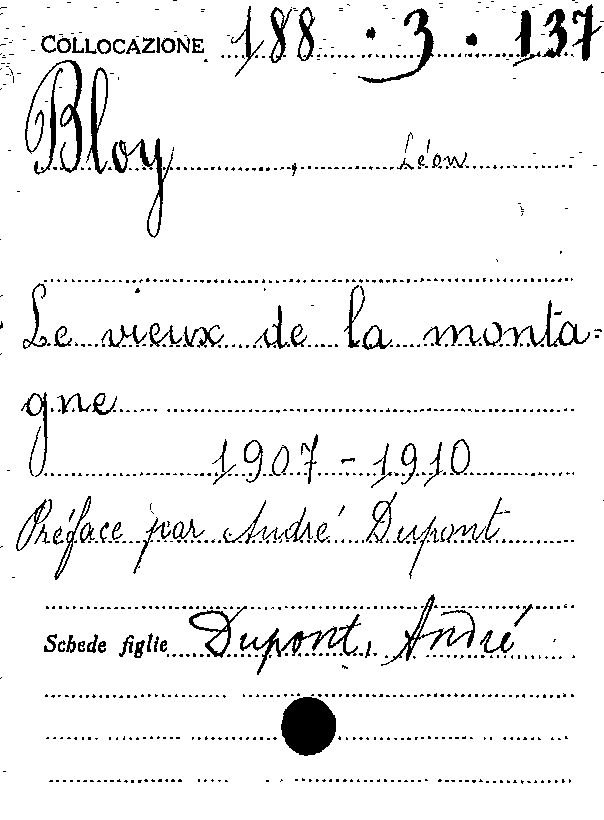 COLLOCAZIONE 188 . 3 . 137
Bloy, Léon
Le vieux de la monta=
gne
1907 - 1910
Préface par André Dupont
Schede figlie Dupont, André